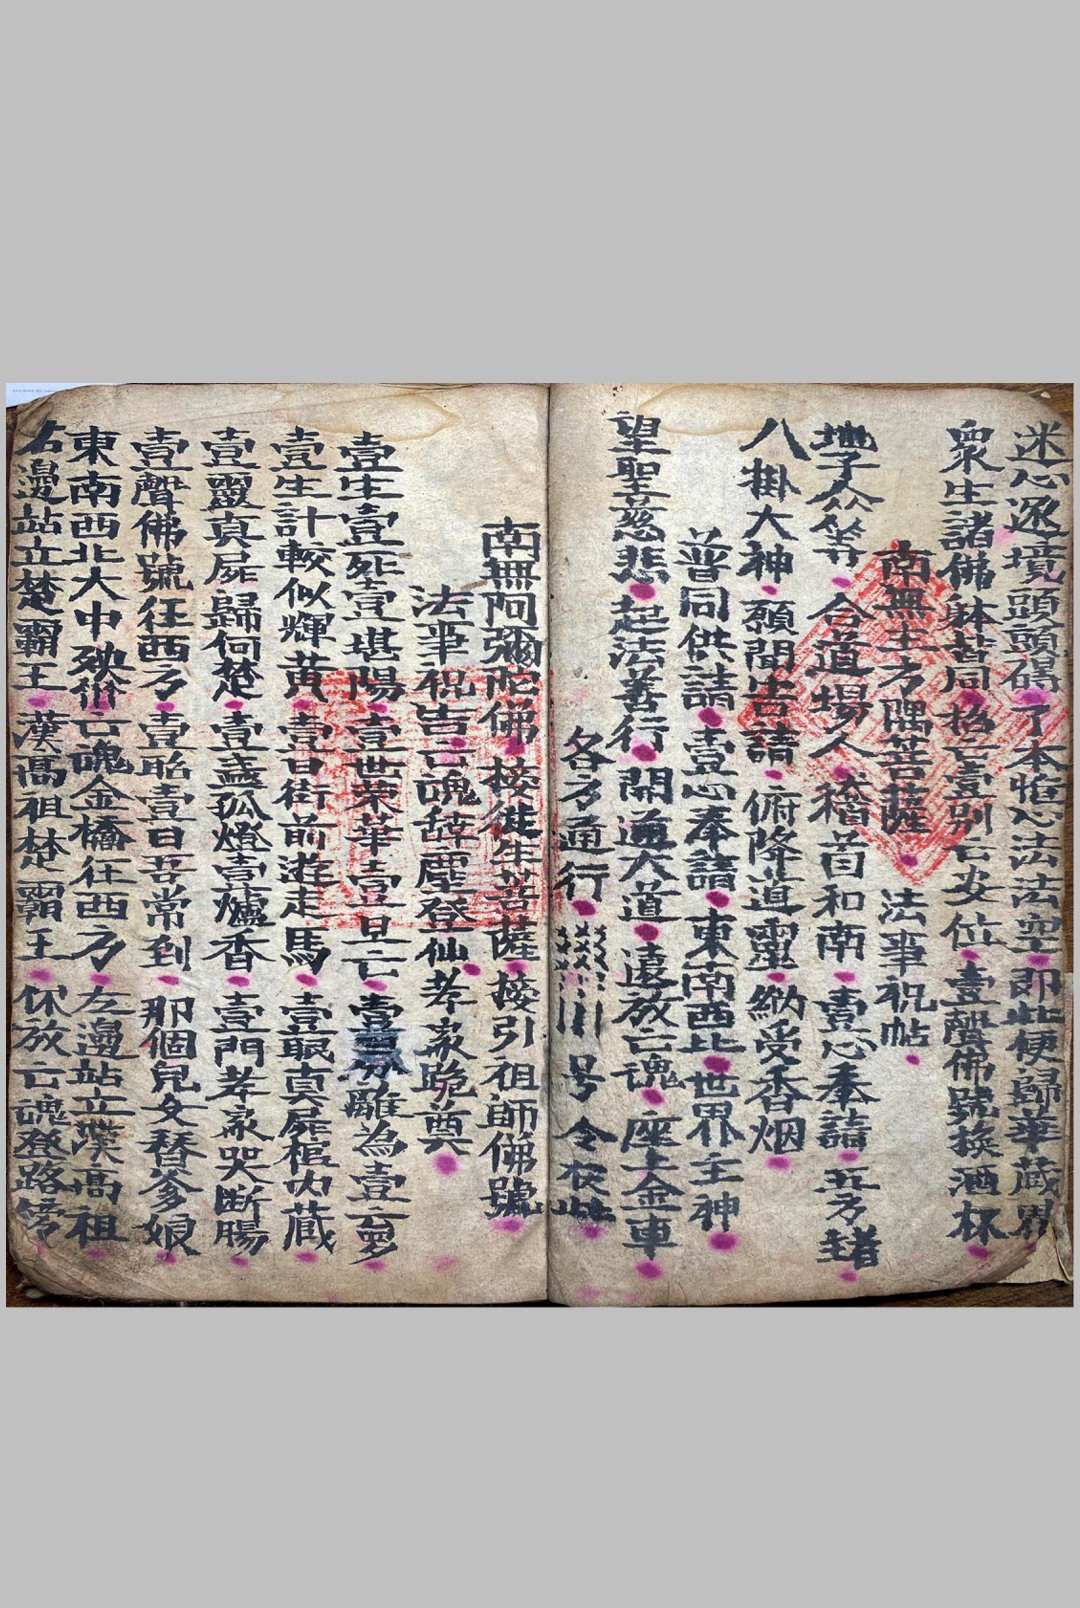 迷心逐境頭頭碍了本惟心法法空即此便歸華藏界
衆生諸佛躰皆同極亡壹別亡安位壹聲佛號換酒杯
南無主方隅菩薩法事祝帖
地子众等合道場人稽首和南壹心奉請五方諸
八掛大神願聞告請俯降道靈納受香烟
普同供請壹心奉請東南西北世界主神
望聖慈悲起法善行開通大道遠放亡魂座上金車
各方通行 号令
南無阿彌陀佛接徃生菩薩接引祖師佛號
法事祝告亡魂辞塵登仙孝家跪奠
壹生壹死壹堪陽壹世荣華壹旦亡離為壹云夢
壹生計較似輝黄壹日街前遊走馬壹眠真屍棺内蔵
壹靈真屍歸何楚壹盞孤燈壹爐香壹門孝家哭断腸
壹聲佛號徃西方壹眙壹日吾常到那個兒女替爹娘
東南西北大中殃衔亡魂金橋徃西方左邊站立漢高祖
右邊站立楚霸王漢高祖楚霸王休放亡魂登路傍